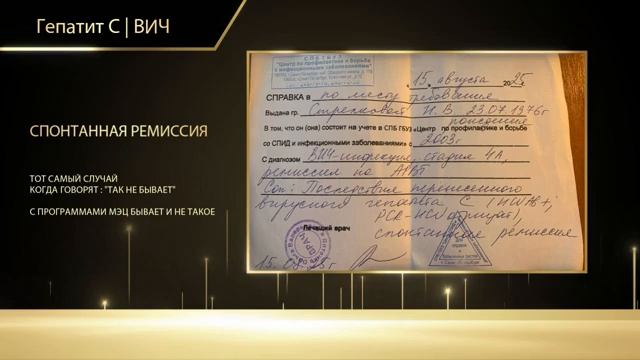 Гепатит С | ВИЧ
СПОНТАННАЯ РЕМИССИЯ
ТОТ САМЫЙ СЛУЧАЙ
КОГДА ГОВОРЯТ : "ТАК НЕ БЫВАЕТ"
С ПРОГРАММАМИ МЭЦ БЫВАЕТ И НЕ ТАКОЕ
"Центр по профилактике и борьбе
с инфекционными заболеваниями"
15 августа 2025г.
СПРАВКА в по месту требования
Выдана гр. Н. В. 23.07.1976г
В том, что он (она) состоит на учете в СПБ ГБУЗ «Центр по профилактике и борьбе
со СПИД и инфекционными заболеваниями» с 2003г
С диагнозом ВИЧ-инфекция, стадия 4А,
ремиссия на АРВТ
Соп: Последствия перенесенного
вирусного гепатита С (HCV AB+,
PCR-HCV отрицат),
Лечащий врач спонтанная ремиссия
ВРАЧ
Для
справок